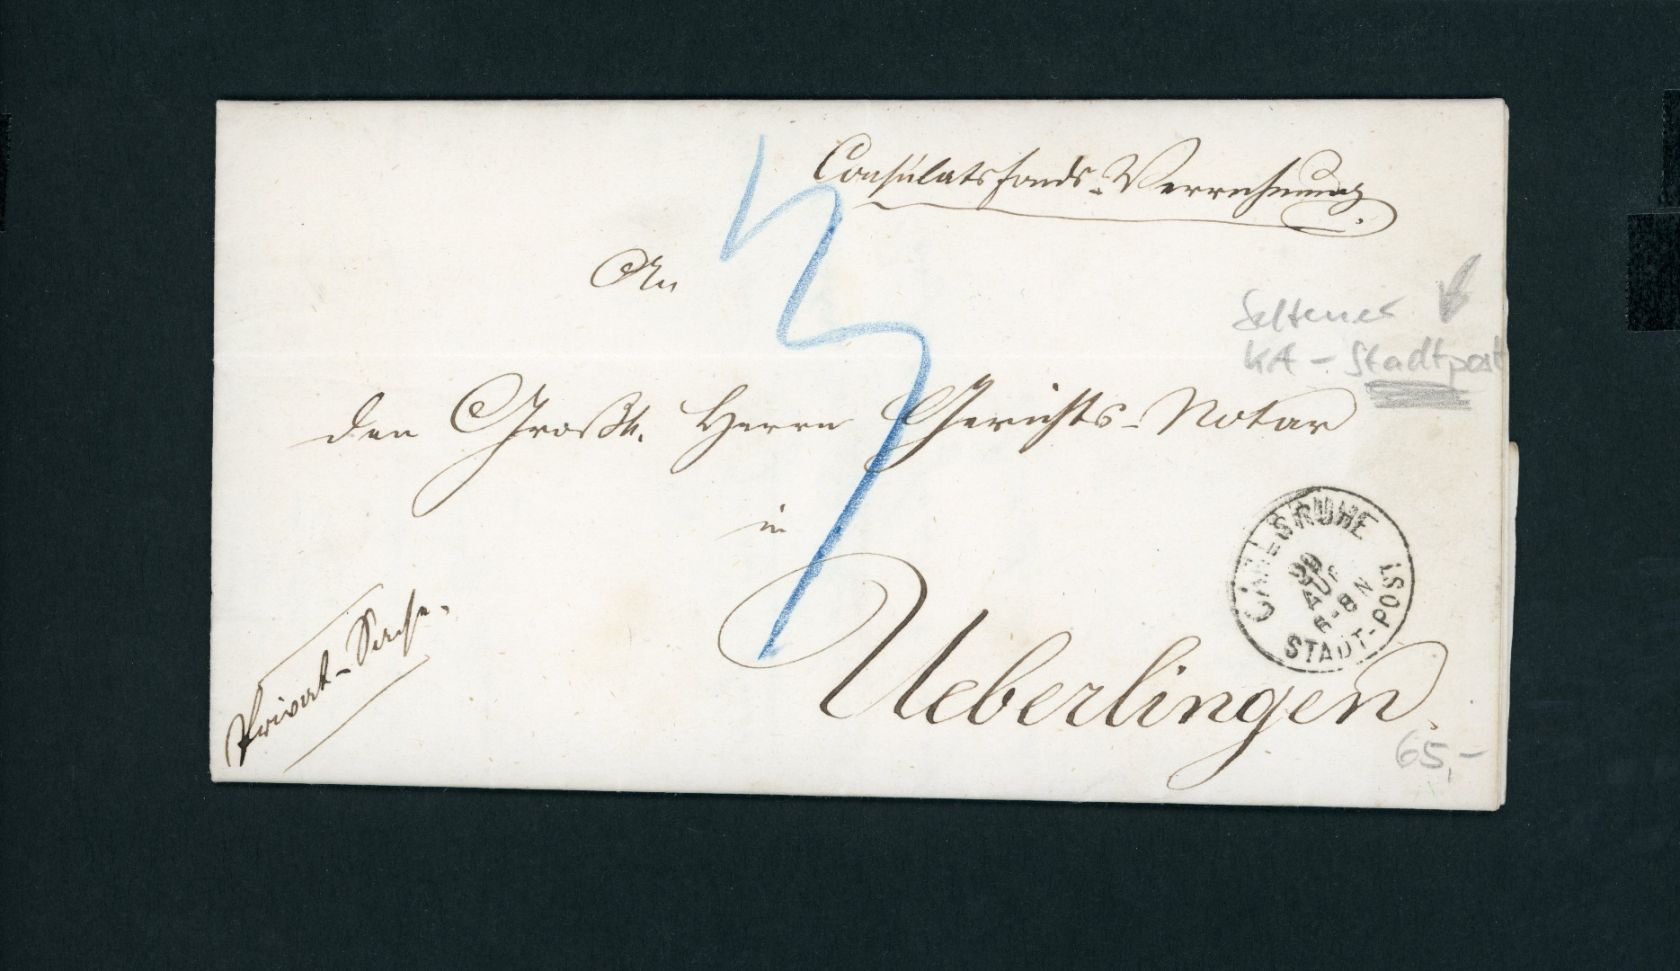 Consulatsfonds-Verrechnung.
An
Seltener
KA - Stadtpost
den Großh. Herrn Gerichts-Notar
in
CARLSRUHE
20
AUG
6-8 N
STADT-POST
Ueberlingen.
Privat-Sache.
65,-
3